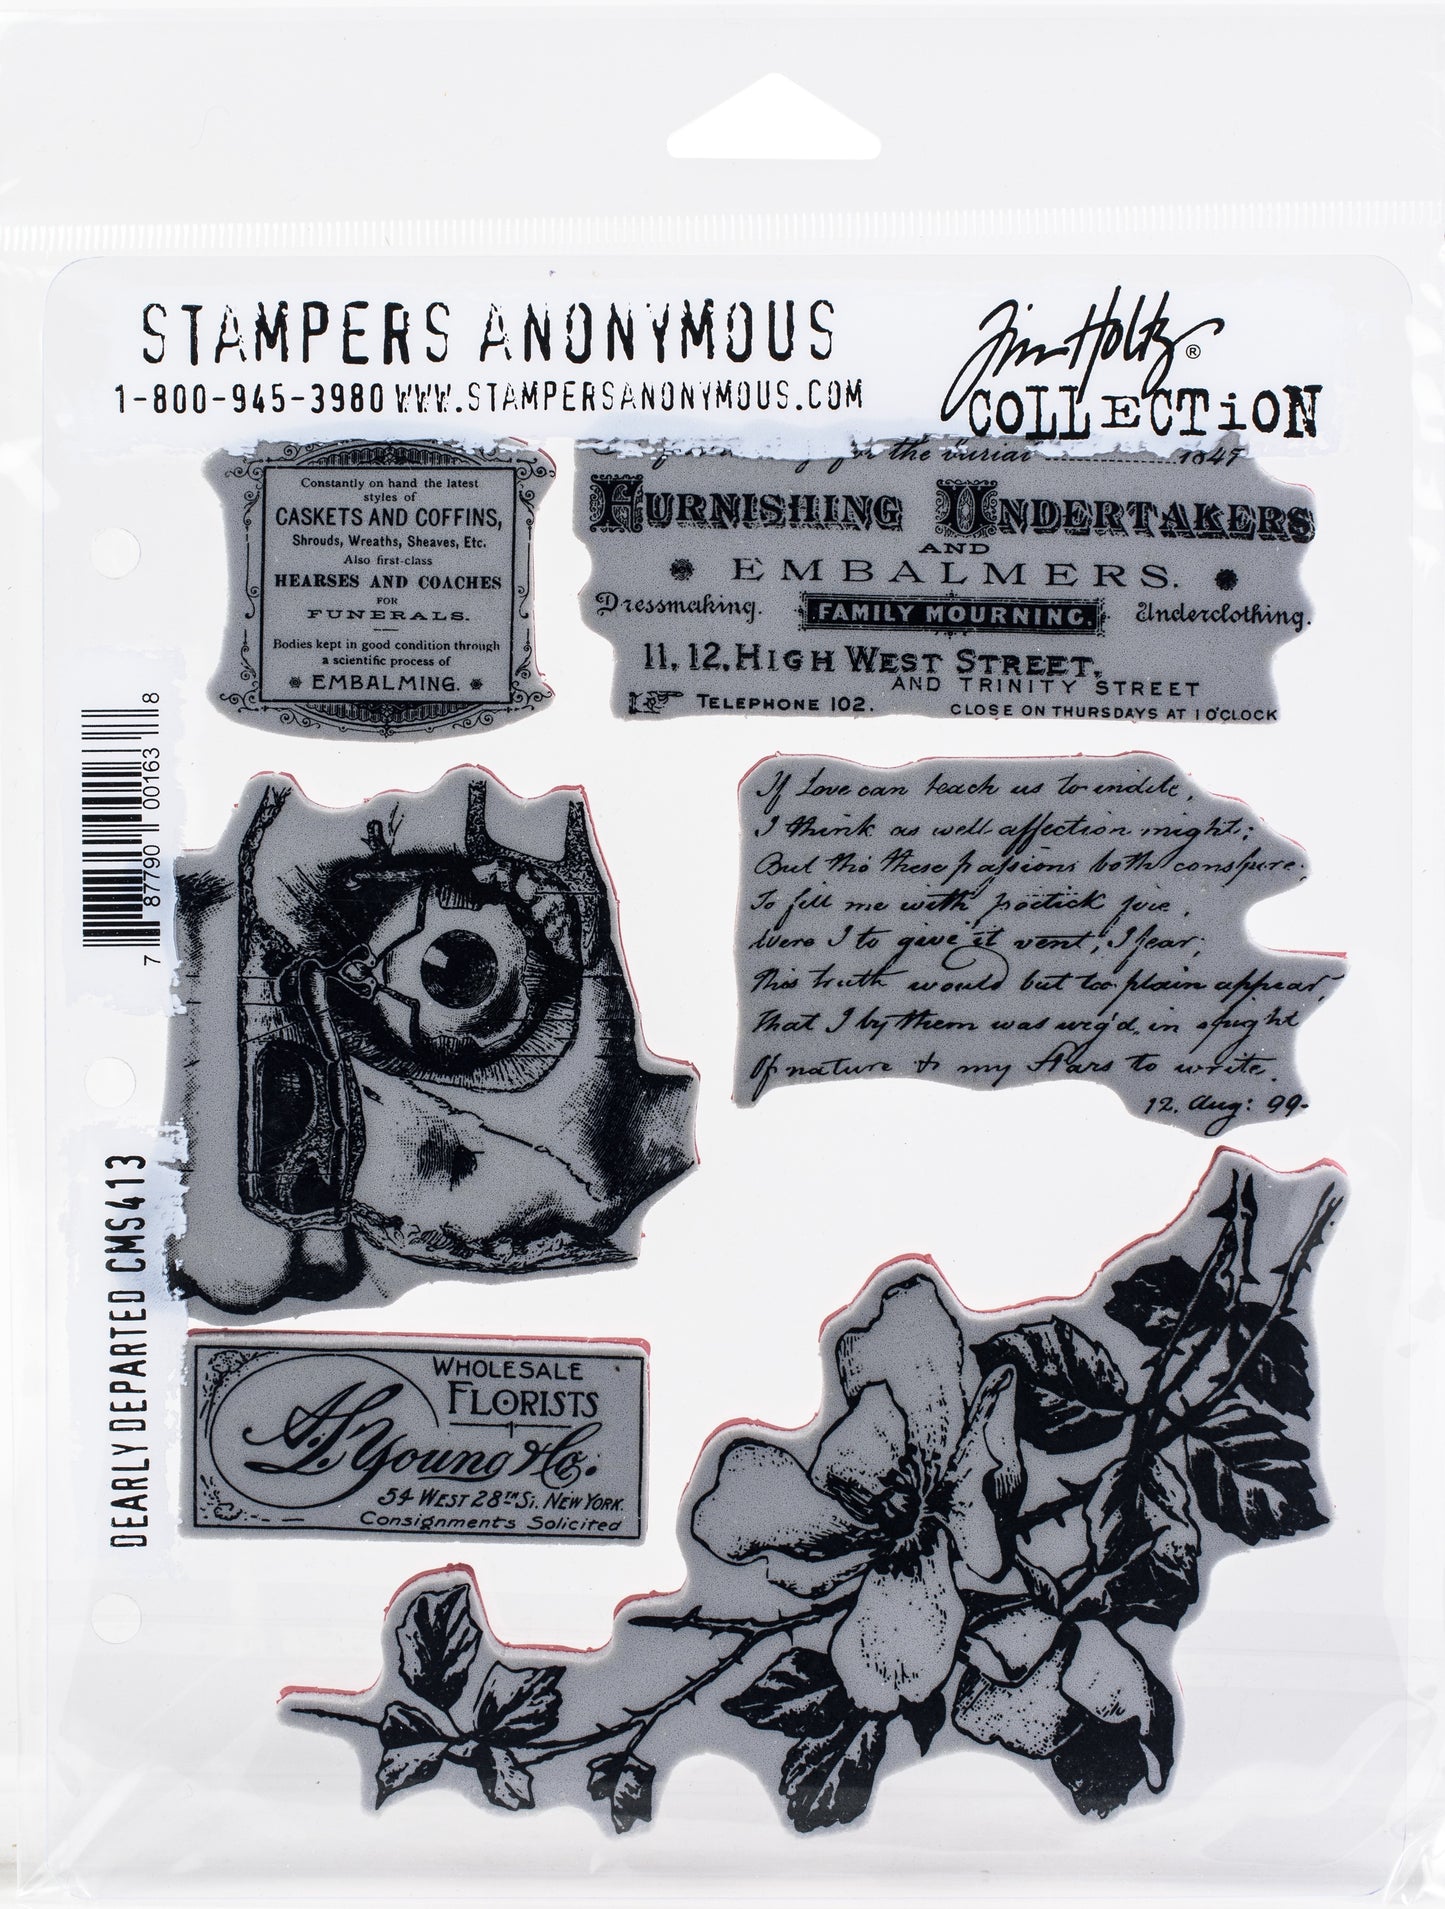 STAMPERS ANONYMOUS
1-800-945-3980 WWW.STAMPERSANONYMOUS.COM
Tim Holtz®
COLLECTiON
Constantly on hand the latest
styles of
CASKETS AND COFFINS,
Shrouds, Wreaths, Sheaves, Etc.
Also first-class
HEARSES AND COACHES
FOR
FUNERALS.
Bodies kept in good condition through
a scientific process of
EMBALMING.
the burial 1847
FURNISHING UNDERTAKERS
AND
EMBALMERS.
Dressmaking. FAMILY MOURNING. Underclothing.
11, 12, HIGH WEST STREET,
AND TRINITY STREET
TELEPHONE 102. CLOSE ON THURSDAYS AT 1 O'CLOCK
If Love can teach us to indite,
I think as well affection might;
But tho these passions both conspire,
To fill me with poetick fire,
Were I to give it vent, I fear,
This truth would but too plain appear,
That I by them was urg'd, in spight
Of nature & my Stars to write.
12. Aug: 99-
7 87790 00163 8
DEARLY DEPARTED CMS413
WHOLESALE
FLORISTS
A.L. Young & Co.
54 WEST 28TH ST. NEW YORK.
Consignments Solicited